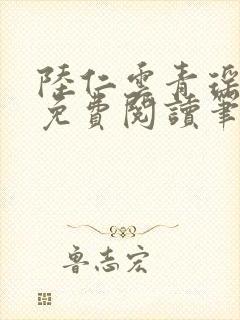 陸仁雲青瑤
免費閱讀筆
魯志宏